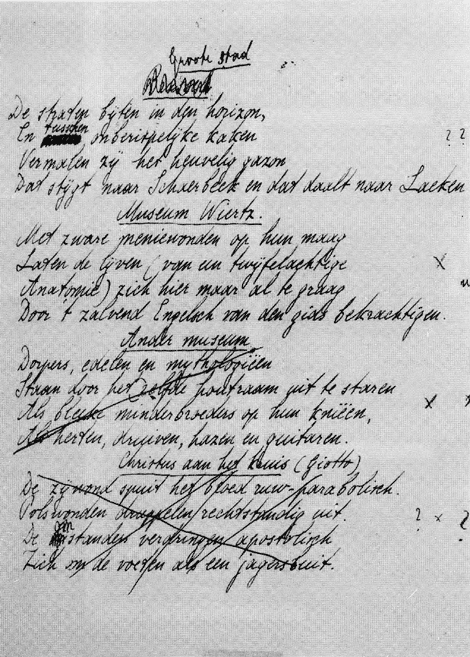 Groote stad
De straten bijten in den horizon,
En tusschen onberispelijke kaken
Vermalen zij het heuvelig gazon
Dat stijgt naar Schaerbeek en dat daalt naar Laeken
? ?
Museum Wiertz.
Met zware meniewonden op hun maag
Laten de lijven (van een twijfelachtige
X
Anatomie) zich hier maar al te graag
Door 't zalvend Engelsch van den gids bekrachtigen.
Ander museum
Dorpers, edelen en mythologieën
Staan door het zelfde houtraam uit te staren
Als bleeke minderbroeders op hun knieën,
X
Als herten, druiven, hazen en guitaren.
Christus aan het kruis (Giotto)
De zijwond spuit het bloed ruw-parabolisch.
Polswonden druppelen rechtstandig uit.
? x ?
De omstanders verdringen apostolisch
Zich om de voeten als een jagersbuit.